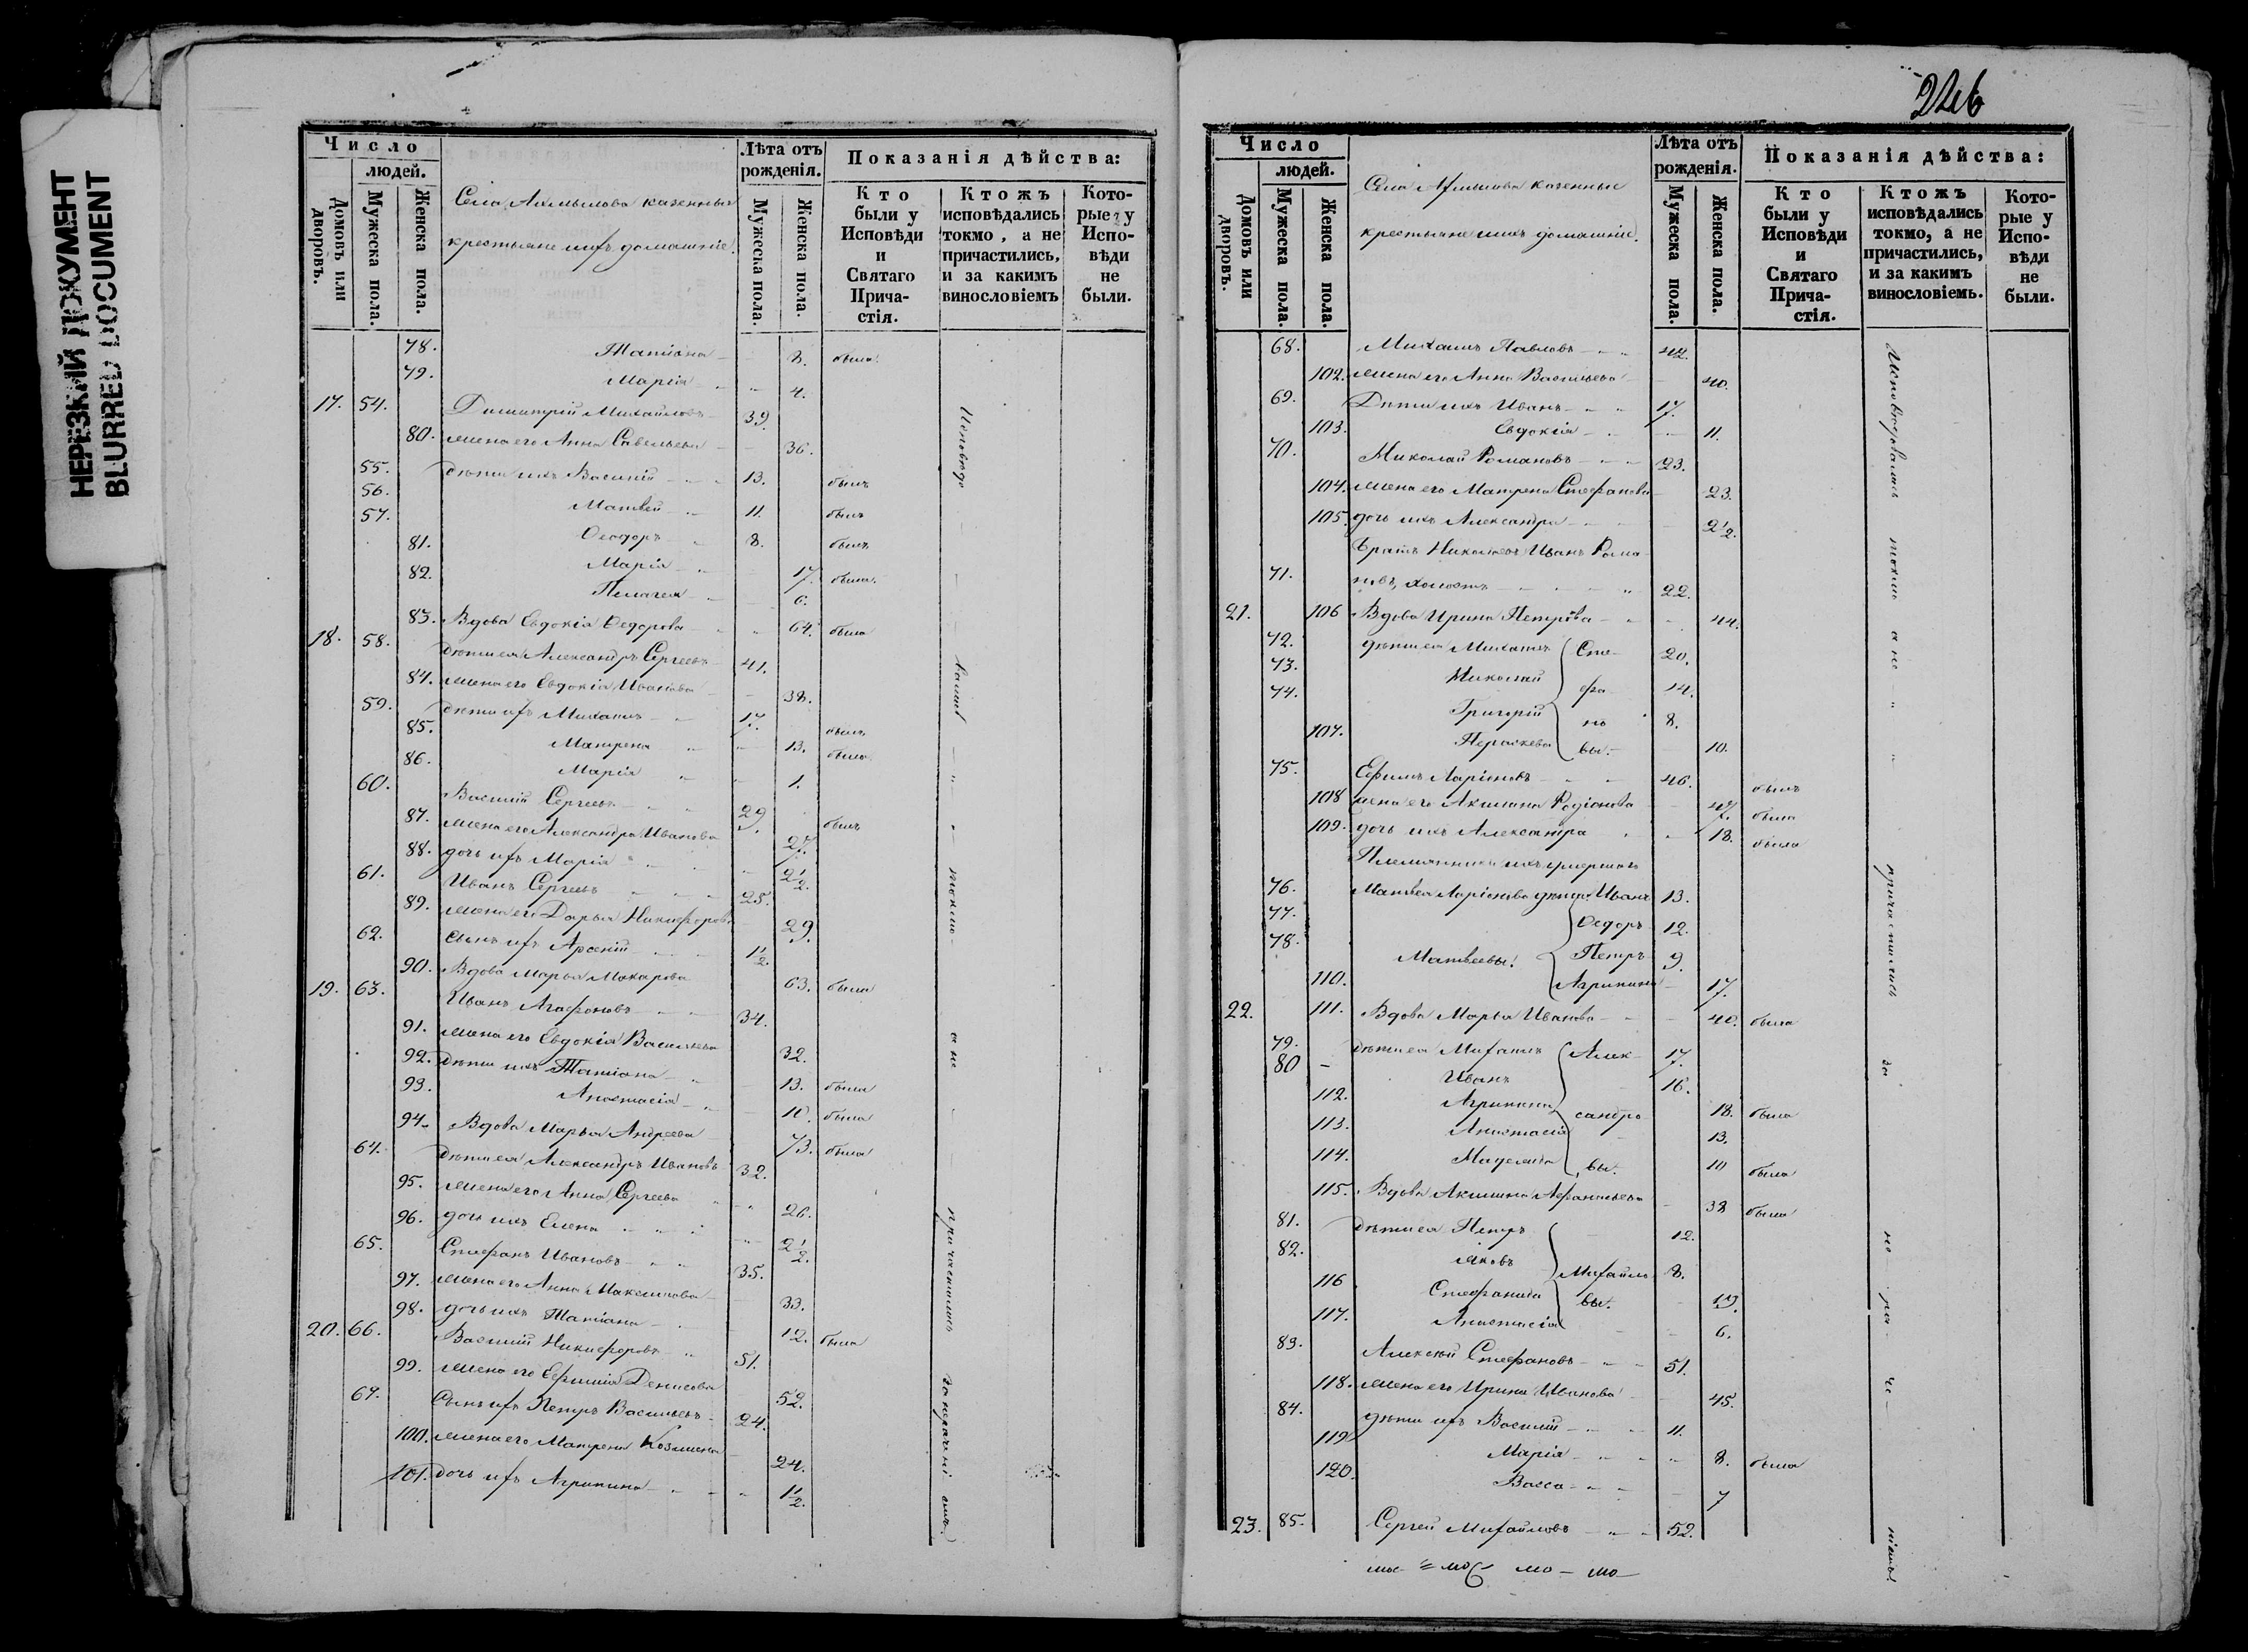 НЕРЕЗКИЙ ДОКУМЕНТ
BLURRED DOCUMENT
Число
людей.
Домовъ или дворовъ.
Мужеска пола.
Женска пола.
крестьяне и ихъ домашніе.
Лѣта отъ рожденія.
Мужеска пола.
Женска пола.
Показанія дѣйства:
Кто были у Исповѣди и Святаго Прича-стія.
Ктожъ исповѣдались токмо, а не причастились, и за какимъ винословіемъ
Кото-рые у Испо-вѣди не были.
78. Татіана 8. была
79. Марія 4.
17. 54. Димитрій Михайловъ 39.
80. жена его Анна Савельева 36.
55. дѣти ихъ Василій 13. былъ
56. Матвей 11. былъ
57. Ѳеодоръ 8. былъ
81. Марія 17. была
82. Пелагея 6.
83. Вдова Евдокія Ѳедорова 64. была
18. 58. дѣти ея Александръ Сергеевъ 41.
84. жена его Евдокія Иванова 38.
59. дѣти ихъ Михаилъ 17. былъ
85. Матрена 13. была
86. Марія 1.
60. Василій Сергеевъ 29. былъ
87. жена его Александра Иванова 27.
88. дочь ихъ Марія 2 1/2.
61. Иванъ Сергеевъ 25.
89. жена его Дарья Никифорова 29.
62. сынъ ихъ Арсеній 1/2.
90. Вдова Марья Макарова 63. была
19. 63. Иванъ Агафоновъ 34.
91. жена его Евдокія Васильева 32.
92. дѣти ихъ Татіана 13. была
93. Анастасія 10. была
94. Вдова Марья Андреева 73. была
64. дѣти ея Александръ Ивановъ 32.
95. жена его Анна Сергеева 26.
96. дочь ихъ Елена 2 1/2.
65. Стефанъ Ивановъ 35.
97. жена его Анна Максимова 33.
98. дочь ихъ Татіана 12. была
20. 66. Василій Никифоровъ 51.
99. жена его Ефимія Денисова 52.
67. Сынъ ихъ Петръ Васильевъ 24.
100. жена его Матрена Козмина 24.
101. дочь ихъ Агрипина 1/2.
токмо а не причастились
Число
людей.
Домовъ или дворовъ.
Мужеска пола.
Женска пола.
Села казенные
крестьяне и ихъ домашніе.
Лѣта отъ рожденія.
Мужеска пола.
Женска пола.
Показанія дѣйства:
Кто были у Исповѣди и Святаго Прича-стія.
Ктожъ исповѣдались токмо, а не причастились, и за какимъ винословіемъ.
Кото-рые у Испо-вѣди не были.
68. Михаилъ Павловъ 42.
102. жена его Анна Васильева 40.
69. Дѣти ихъ Иванъ 17.
103. Евдокія 11.
70. Николай Романовъ 23.
104. жена его Матрена Стефанова 23.
105. дочь ихъ Александра 2 1/2.
Братъ Николаевъ Иванъ Рома-
71. новъ, холостъ 22.
21. 106 Вдова Ирина Петрова 44.
72. дѣти ея Михаилъ Сте- 20.
73. Николай фа- 14.
74. Григорій но 8.
107. Параскева вы. 10.
75. Ефимъ Ларіоновъ 46. былъ
108 жена его Акилина Родіонова 47. была
109. дочь ихъ Александра 18. была
Племянники ихъ умершаго
76. Матвея Ларіонова дѣти Иванъ 13.
77. Ѳедоръ 12.
78. Матвеевы. Петръ 9.
110. Агрипина 17.
22. 111. Вдова Марья Иванова 40. была
79. дѣти ея Михаилъ Алек- 17.
80 Иванъ 16.
112. Агрипина сандро 18. была
113. Анастасія 13.
114. вы. 10 была
115. Вдова Акилина Афанасьева 38 была
81. дѣти ея Петръ 12.
82. Яковъ Михайло 8.
116 Стефанида вы. 13.
117. Анастасія 6.
83. Алексей Стефановъ 51.
118. жена его Ирина Иванова 45.
84. дѣти ихъ Василій 11.
119 Марія 8. была
120. Васса 7
23. 85. Сергей Михайловъ 52.
Исповѣдовались токмо а не причастились за не-ра-че-ніемъ.